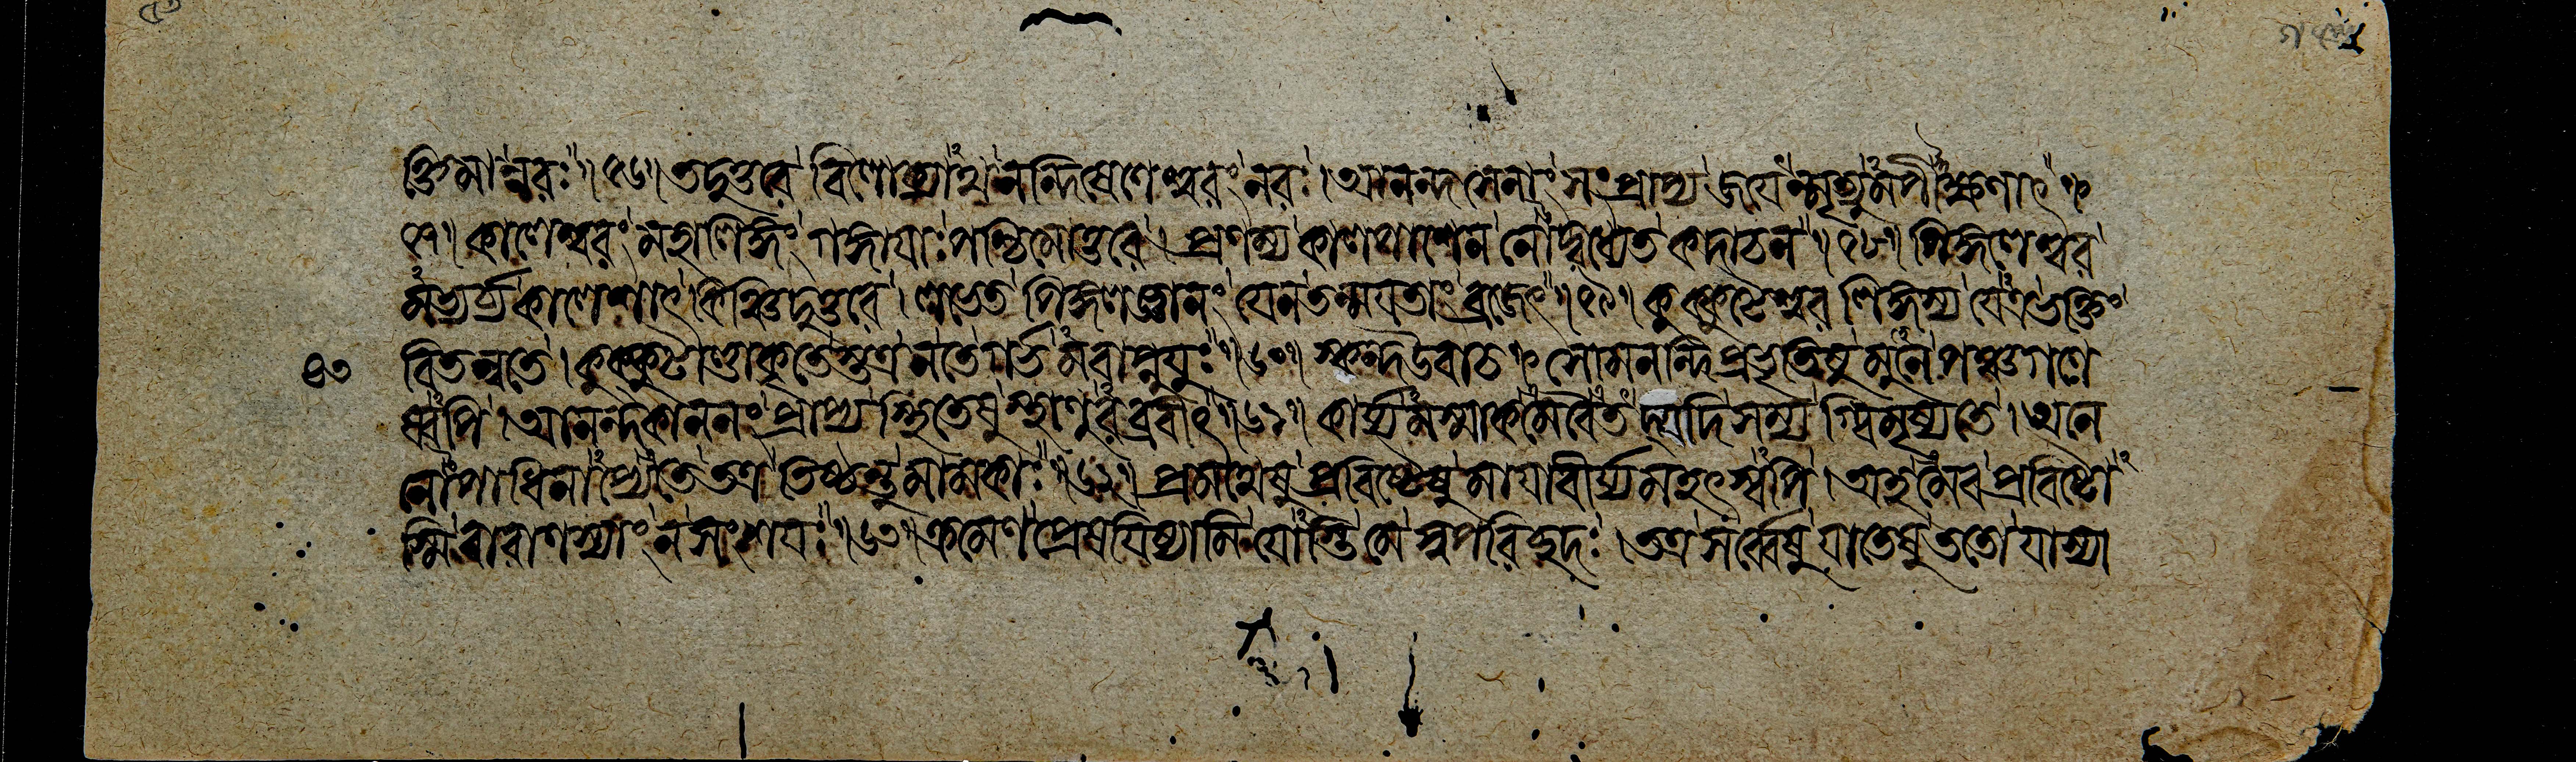 ক্তিমান্নরঃ ॥ ৫৬ ॥ তদুত্তরে বিলোক্যাথ নন্দিষেণেশ্বরং নরঃ । আনন্দসেনাং সংপ্রাপ্য জয়েন্মৃত্যুমপীক্ষণাৎ ॥
৫৭ ॥ কালেশ্বরং মহালিঙ্গং গঙ্গায়াঃ পশ্চিমোত্তরে । প্রণম্য কালপাশেন নো বধ্যেত কদাচন ॥ ৫৮ ॥ পিঙ্গলেশ্বর
মভ্যর্চ্চ্য কালেশাৎ কিঞ্চিদুত্তরে । লভেত পিঙ্গলজ্ঞানং যেন তন্ময়তাং ব্রজেৎ ॥ ৫৯ ॥ কুক্কুটেশ্বরলিঙ্গস্য যেত্র ভক্তিং
বিতন্বতে । কুক্কুটাণ্ডাকৃতেস্তত্র ন তে গর্ভমবাপ্নুয়ুঃ ॥ ৬০ ॥ স্কন্দ উবাচ ॥ সোমনন্দিপ্রভৃতিষু মুনে পঞ্চগণে
ষ্বপি । আনন্দকাননং প্রাপ্য স্থিতেষু স্থাণুরব্রবীৎ ॥ ৬১ ॥ কার্য্যমস্মাকমেবৈতদ্যদি সম্যগ্বিমৃষ্যতে । অনে
নোপাধিনাপ্যেতে তত্র তিষ্ঠন্তু মামকাঃ ॥ ৬২ ॥ প্রমথেষু প্রবিষ্টেষু মায়াবীর্য্যমহৎস্বপি । অহমেব প্রবিষ্টো
স্মি বারাণস্যাং ন সংশয়ঃ ॥ ৬৩ ॥ ক্রমেণ প্রেষয়িষ্যামি যোস্তি মে স্বপরিচ্ছদঃ । তত্র সর্ব্বেষু যাতেষু ততো যাস্যা
৪৩